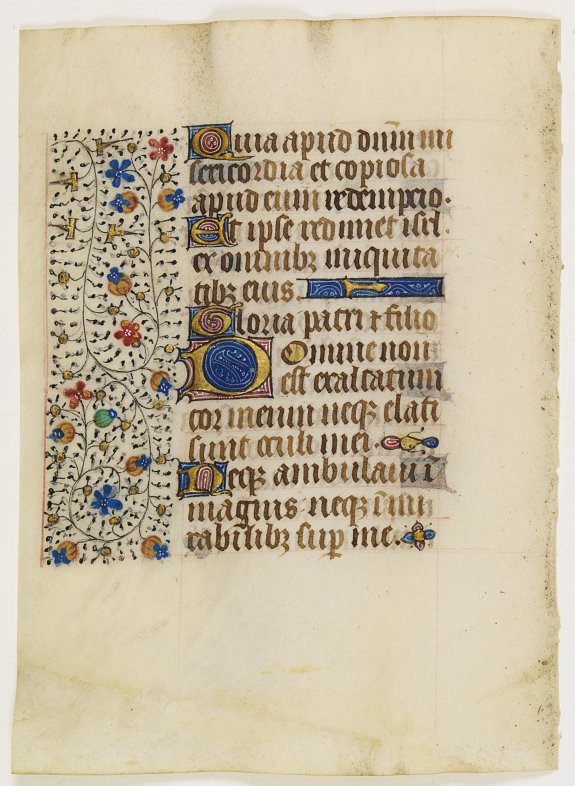 Quia apud dn̄m mi
sericordia et copiosa
apud eum redempcio.
Et ipse redimet isrl.
ex omnibꝫ iniquita
tibꝫ eius.
Gloria patri ⁊ filio
Domine non
est exaltatum
cor meum neqꝫ elati
sunt oculi mei.
Neqꝫ ambulaui i
magnis neqꝫ ī mi
rabilibꝫ suꝑ me.